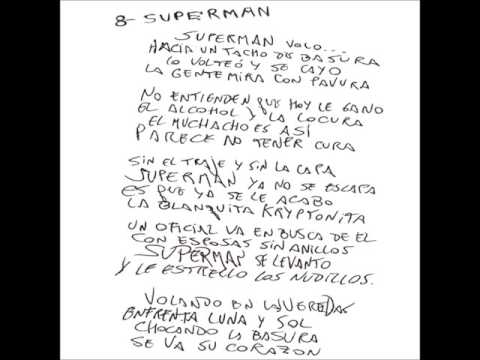 8- SUPERMAN
SUPERMAN VOLO...
HACIA UN TACHO DE BASURA
LO VOLTEÓ Y SE CAYO
LA GENTE MIRA CON PAVURA
NO ENTIENDEN QUE HOY LE GANO
EL ALCOHOL Y LA LOCURA
EL MUCHACHO ES ASÍ
PARECE NO TENER CURA
SIN EL TRAJE Y SIN LA CAPA
SUPERMAN YA NO SE ESCAPA
ES QUE YA SE LE ACABO
LA BLANQUITA KRYPTONITA
UN OFICIAL VA EN BUSCA DE EL
CON ESPOSAS SIN ANILLOS
SUPERMAN SE LEVANTO
Y LE ESTRELLO LOS NUDILLOS.
VOLANDO EN LAS VEREDAS
ENFRENTA LUNA Y SOL
CHOCANDO LA BASURA
SE VA SU CORAZON